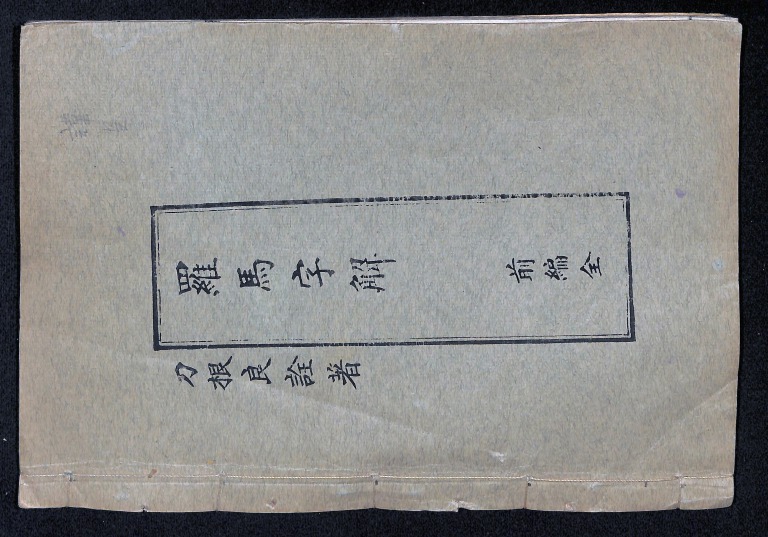 羅馬字解 前編全
刀根良詮著